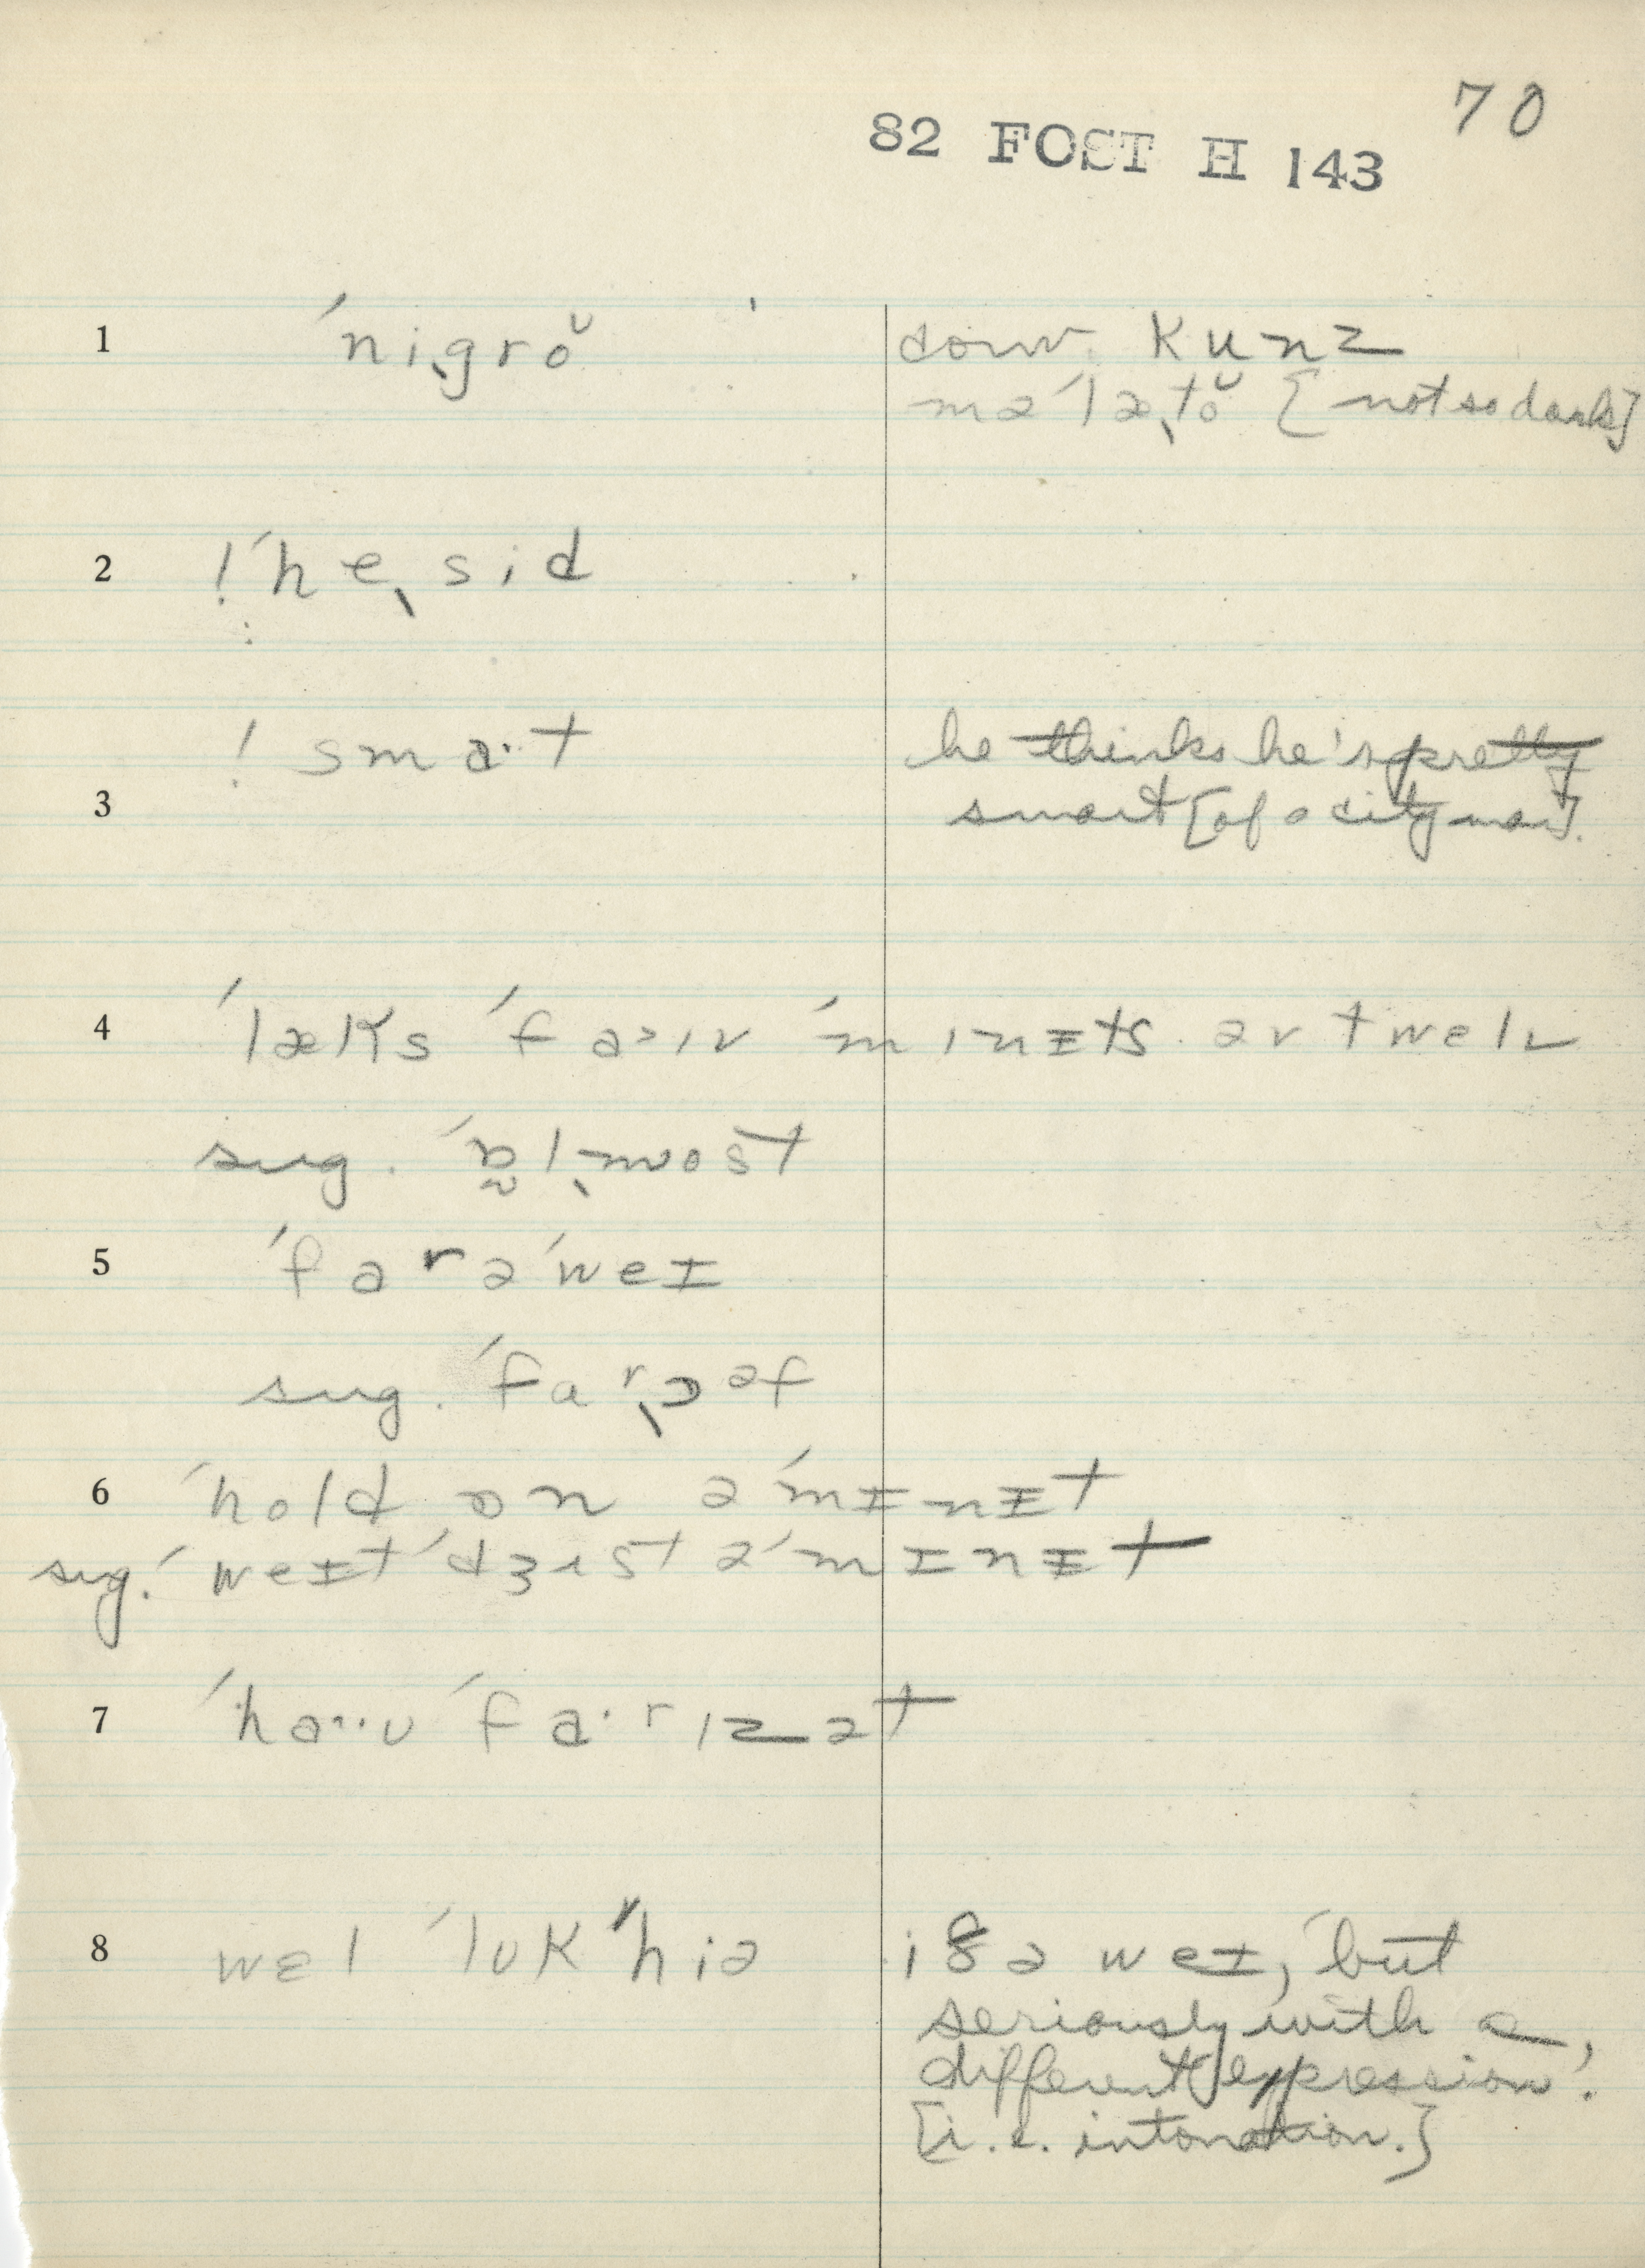 70
82 FOST H 143
1 ˈniˌgrŏ conv. kunz
məˈlæˌtŏ [not so dark]
2 !ˈheˌsid
3 !smaˑt he thinks he's pretty
smart [of a city man].
4 ˈlæks ˈfa˃ɪv ˈmɪnɪts əv twelv
sug. ˈɒ̰lˌmost
5 ˈfarəˈweɪ
sug. ˈfarˌɔəf
6 ˈhold ɒn əˈmɪnɪt
sug. ˈweɪt ˈdʒɪst əˈmɪnɪt
7 ˈhaˑˑʊ ˈfaˑrɪzət
8 wel ˈlʊk ˈˈhiə i8ə weɪ, ˈbut
seriously with a
different expression.'
[i.e. intonation.]